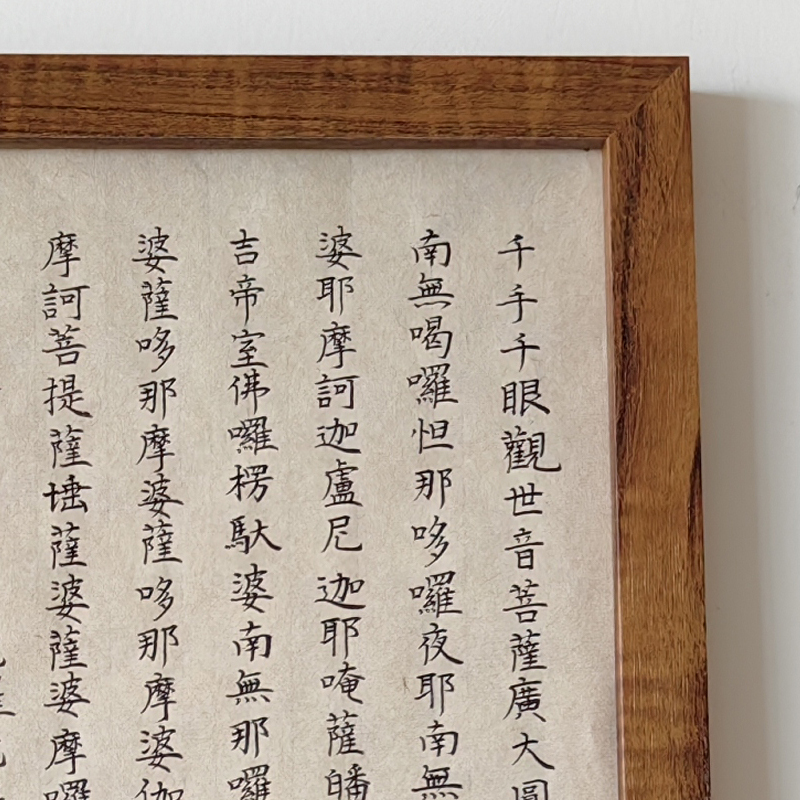 千手千眼觀世音菩薩廣大圓
南無喝囉怛那哆囉夜耶南無
婆耶摩訶迦盧尼迦耶唵薩皤
吉帝室佛囉楞馱婆南無那囉
婆薩哆那摩婆薩哆那摩婆伽
摩訶菩提薩埵薩婆薩婆摩囉